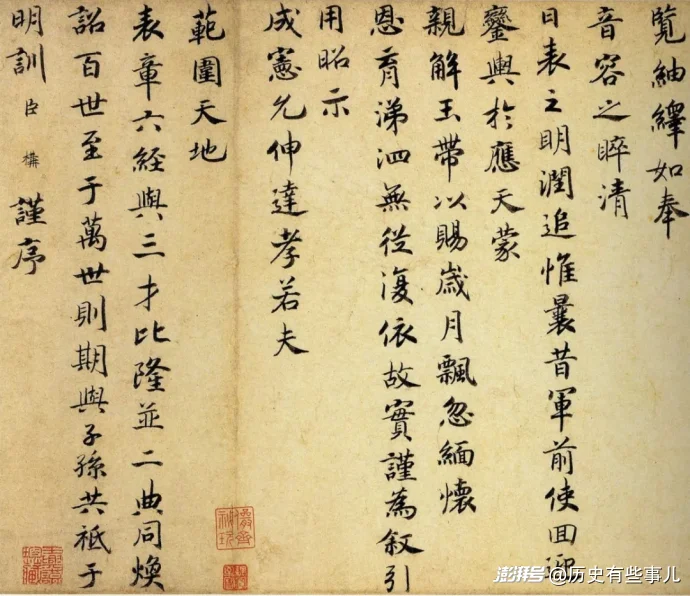 覽紬繹如奉
音容之睟清
日表之明潤追惟曩昔軍前使回迎
鑾輿於應天蒙
親解玉帶以賜歲月飄忽緬懷
恩育涕泗無從復依故實謹為叙引
用昭示
成憲允伸達孝若夫
範圍天地
表章六經與三才比隆並二典同煥
詔百世至于萬世則期與子孫共祗于
明訓臣構謹序
澎湃号@历史有些事儿